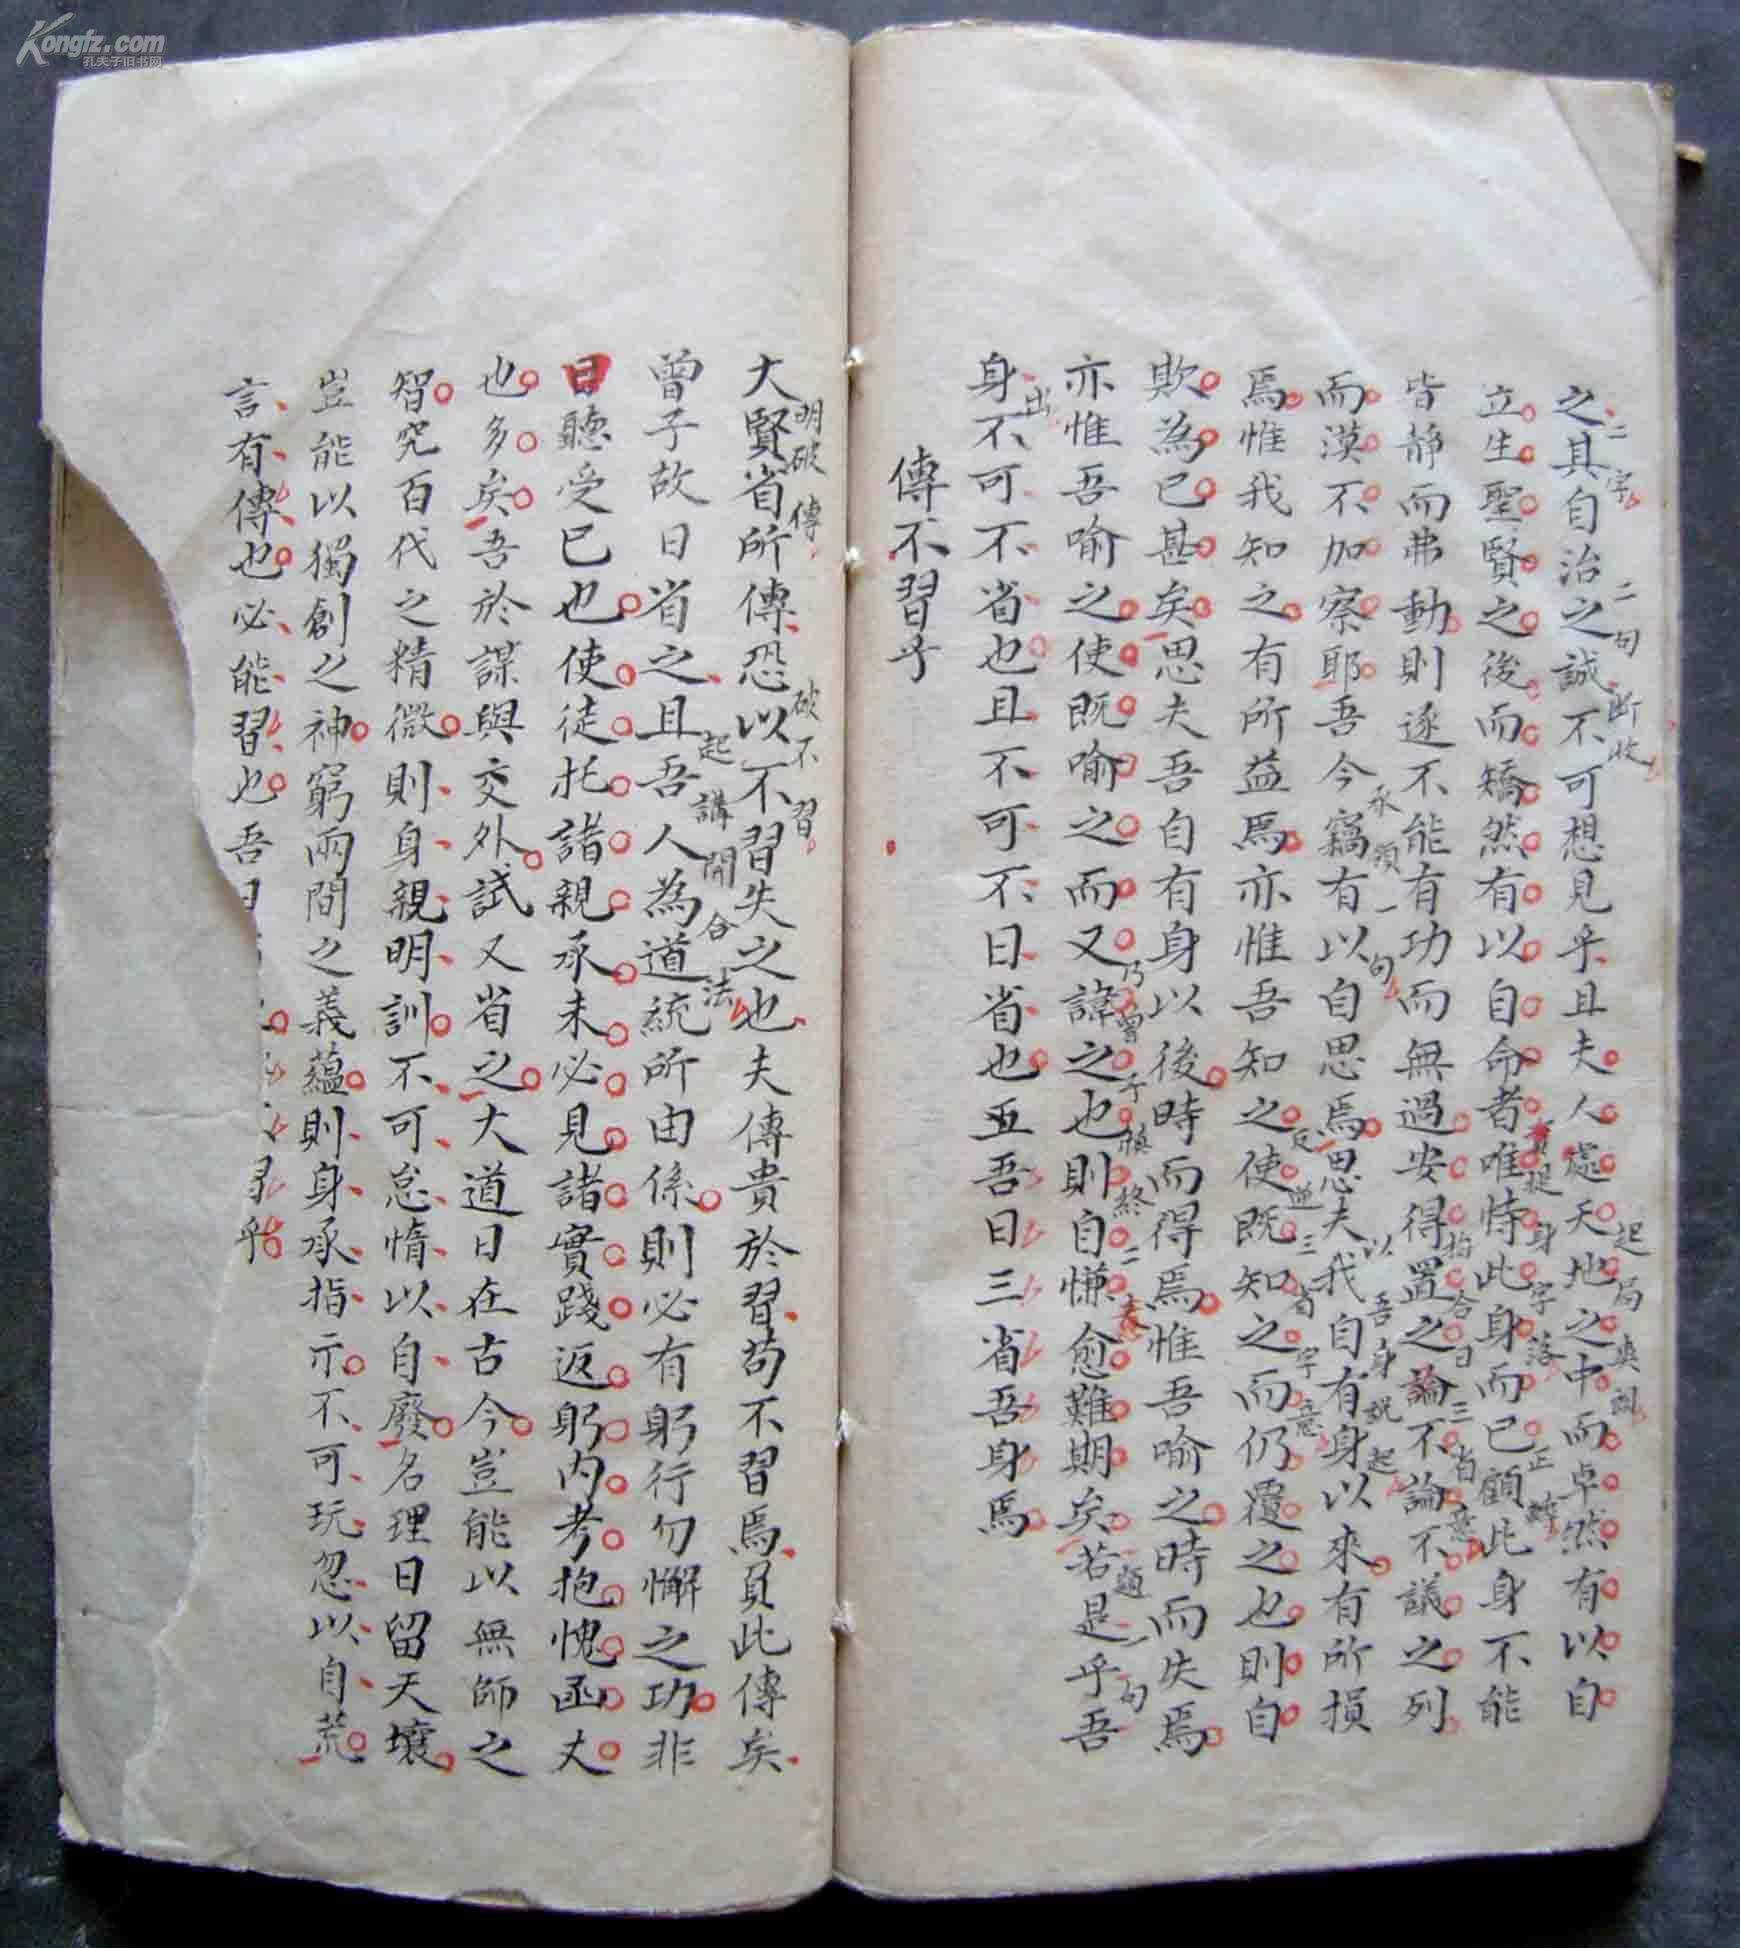 Kongfz.com
孔夫子旧书网
之其自治之誠不可想見乎且夫人處天地之中而卓然有以自
二字 二句断收 起局爽朗
立生聖賢之後而矯然有以自命者唯恃此身而已顧此身不能
提身字落 正
皆靜而弗動則遂不能有功而無過安得置之論不論不議之列
合日三省意
而漠不加察耶吾今竊有以自思焉思夫我自有身以來有所損
承領一句 以吾身説起
焉惟我知之有所益焉亦惟吾知之使既知之而仍覆之也則自
反逆三省字意
欺為已甚矣思夫吾自有身以後時而得焉惟吾喻之時而失焉
亦惟吾喻之使既喻之而又諱之也則自慊愈難期矣若是乎吾
乃曾子慎終二 題一句
身不可不省也且不可不日省也五吾日三省吾身焉
出
傳不習乎
大賢省所傳恐以不習失之也夫傳貴於習苟不習焉負此傳矣
明破傳 破不習
曾子故日省之且吾人為道統所由係則必有躬行勿懈之功非
起講開合法
日聽受已也使徒托諸親承未必見諸實踐返躬内考抱愧函丈
也多矣吾於謀與交外試又省之大道日在古今豈能以無師之
智究百代之精微則身親明訓不可怠惰以自廢名理日留天壤
豈能以獨創之神窮兩間之義蘊則身承指示不可玩忽以自荒
言有傳也必能習也吾日 習乎